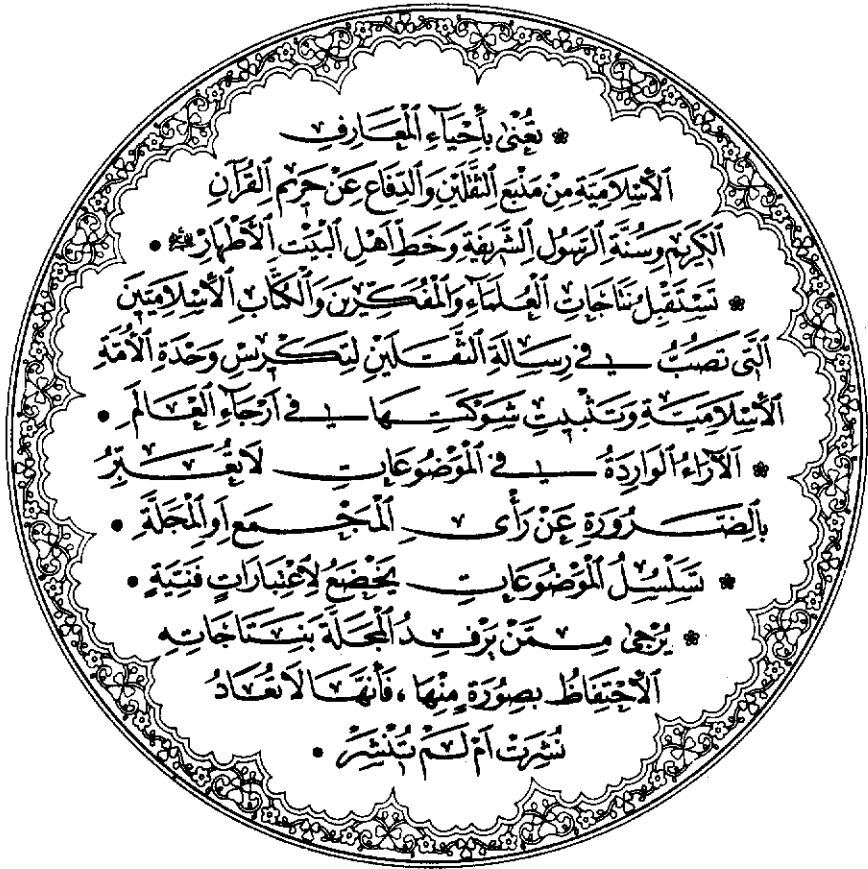 ❀ تُعْنىٰ بِأَحْيَاءِ الْمَعَارِفِ
الْأِسْلَامِيَّةِ مِنْ مَنْبَعِ الثَّقَلَيْنِ وَالدِّفَاعِ عَنْ حَرِيمِ الْقُرْآنِ
الْكَرِيمِ وَسُنَّةِ الرَّسُولِ الشَّرِيفَةِ وَخَطِّ اَهْلِ الْبَيْتِ الْأَطْهَارِ •
❀ تَسْتَقْبِلُ نِتَاجَاتِ الْعُلَمَاءِ وَالْمُفَكِّرِينَ وَالْكُتَّابِ الْأِسْلَامِيِّينَ
الَّتِي تَصُبُّ فِي رِسَالَةِ الثَّقَلَيْنِ لِتَكْرِيسِ وَحْدَةِ الْأُمَّةِ
الْأِسْلَامِيَّةِ وَتَثْبِيتِ شَوْكَتِهَا فِي اَرْجَاءِ الْعَالَمِ •
❀ الْآرَاءُ الْوَارِدَةُ فِي الْمَوْضُوعَاتِ لَا تُعَبِّرُ
بِالضَّرُورَةِ عَنْ رَأْىِ الْمَجْمَعِ اَوِ الْمَجَلَّةِ •
❀ تَسَلْسُلُ الْمَوْضُوعَاتِ يَخْضَعُ لِأِعْتِبَارَاتٍ فَنِّيَّةٍ •
❀ يُرْجىٰ مِمَّنْ يَرْفِدُ الْمَجَلَّةَ بِنِتَاجَاتِهِ
الْأِحْتِفَاظُ بِصُورَةٍ مِنْهَا ، فَأِنَّهَا لَا تُعَادُ
نُشِرَتْ اَمْ لَمْ تُنْشَرْ •